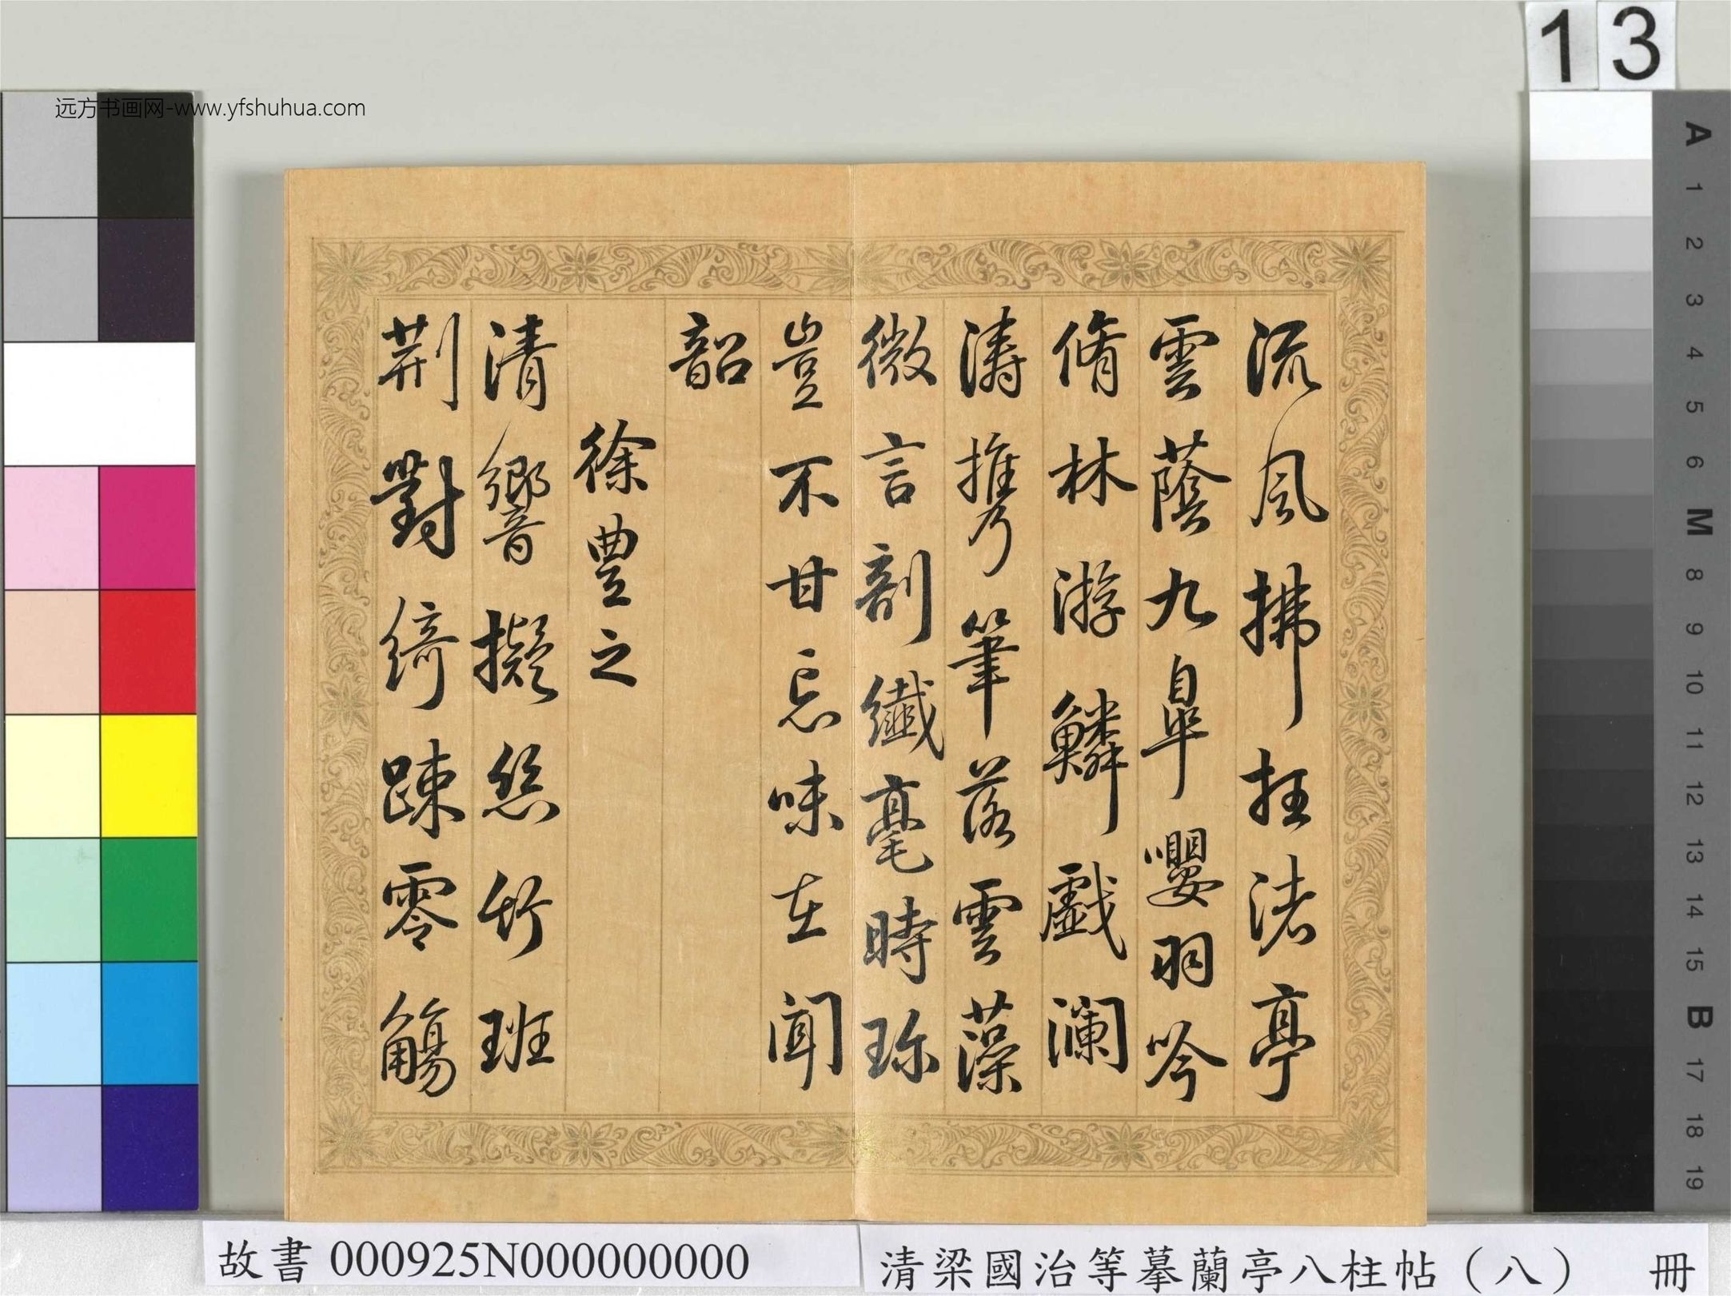 13
远方书画网-www.yfshuhua.com
流風拂抂渚亭
雲蔭九皐嚶羽吟
脩林游鱗戲瀾
濤携筆落雲藻
微言剖纖毫時珎
豈不甘忘味在聞
韶
徐豊之
清響擬絲竹班
荊對綺疎零觴
A
1
2
3
4
5
6
M
8
9
10
11
12
13
14
15
B
17
18
19
故書 000925N000000000
清梁國治等摹蘭亭八柱帖（八） 冊